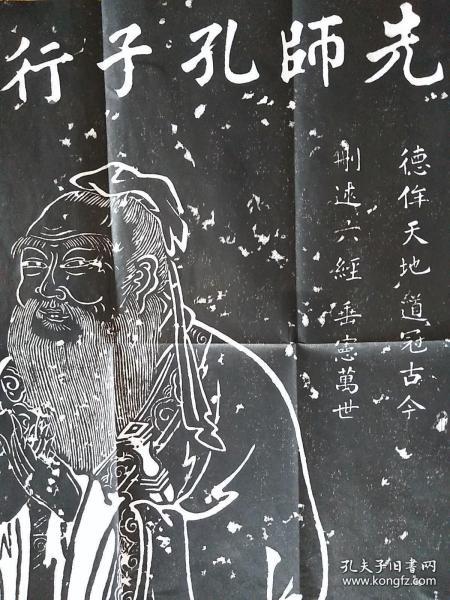 先師孔子行
德侔天地道冠古今
刪述六經垂憲萬世
孔夫子旧书网
www.kongfz.com